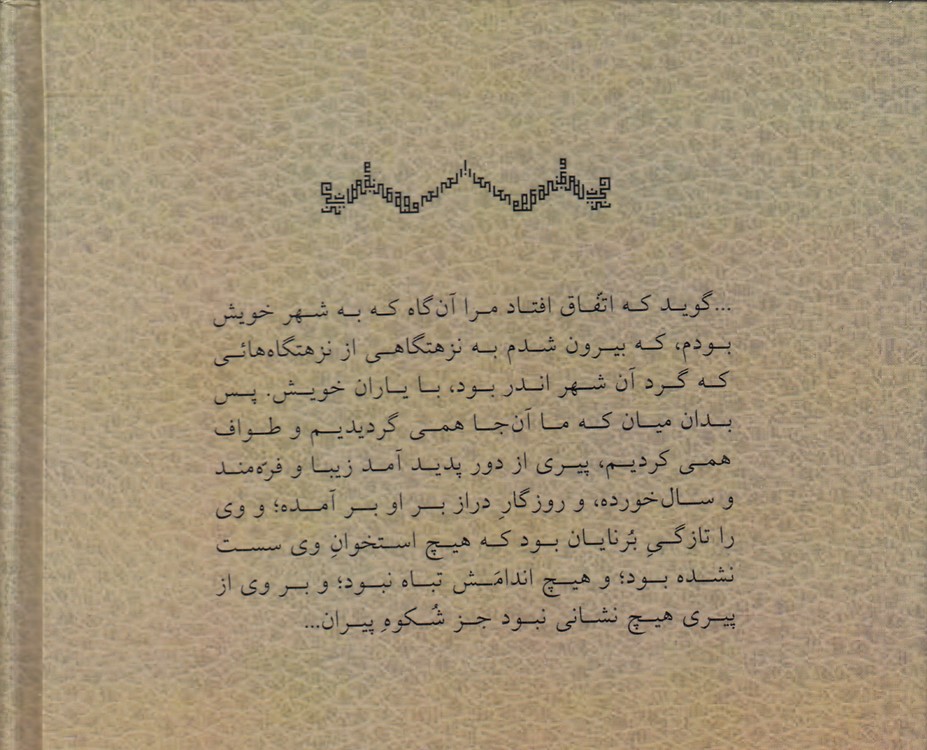 ...گوید که اتّفاق افتاد مرا آن‌گاه که به شهر خویش
بودم، که بیرون شدم به نزهتگاهی از نزهتگاه‌هائی
که گرد آن شهر اندر بود، با یاران خویش. پس
بدان میان که ما آن‌جا همی گردیدیم و طواف
همی کردیم، پیری از دور پدید آمد زیبا و فره‌مند
و سال‌خورده، و روزگارِ دراز بر او بر آمده؛ و وی
را تازگیِ بُرنایان بود که هیچ استخوانِ وی سست
نشده بود؛ و هیچ اندامَش تباه نبود؛ و بر وی از
پیری هیچ نشانی نبود جز شُکوهِ پیران...